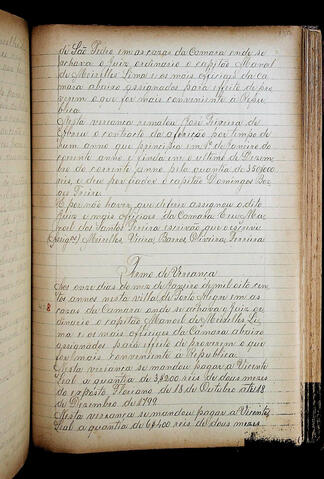 de São Pedro em as cazas da Camara onde se
achava o Juiz ordinario o capitão Manoel
de Meirelles Lima e os mais officiaes da Ca
mara abaixo assignados para effeito de pro
verem o que for mais conveniente a Repu
blica.
Nesta veriança rematou José Pereira de
Abreu o contracto da afferição por tempo de
hum anno que principia em 1º de Janeiro do
corrente anno e finda em o ultimo de Dezem
bro do corrente anno pela quantia de 350$000
reis e deu por fiador o capitão Domingos Bor
ges Freire.
E por não haver que deferir assignou o dito
Juiz e mais officiaes da Camara. Eu Ma
noel dos Santos Pereira escrivão que o escrevi
Meirelles, Vieira, Barros, Oliveira, Ferreira
Termo de Veriança
Aos onze dias do mez de Janeiro de mil oito cen
tos annos nesta villa de Porto Alegre em as
cazas da Camara onde se achava o Juiz or
dinario o capitão Manoel de Meirelles Li
ma e os mais officiaes da Camara abaixo
assignados para effeito de proverem o que
for mais conveniente a Republica
Nesta veriança se mandou pagar a Vicente
Leal a quantia de 3$200 reis de dous mezes
do exposto Floriano de 18 de Outubro até 18
de Dezembro de 1799.
Nesta veriança se mandou pagar a Vicente
Leal a quantia de 6$400 reis de dous mezes